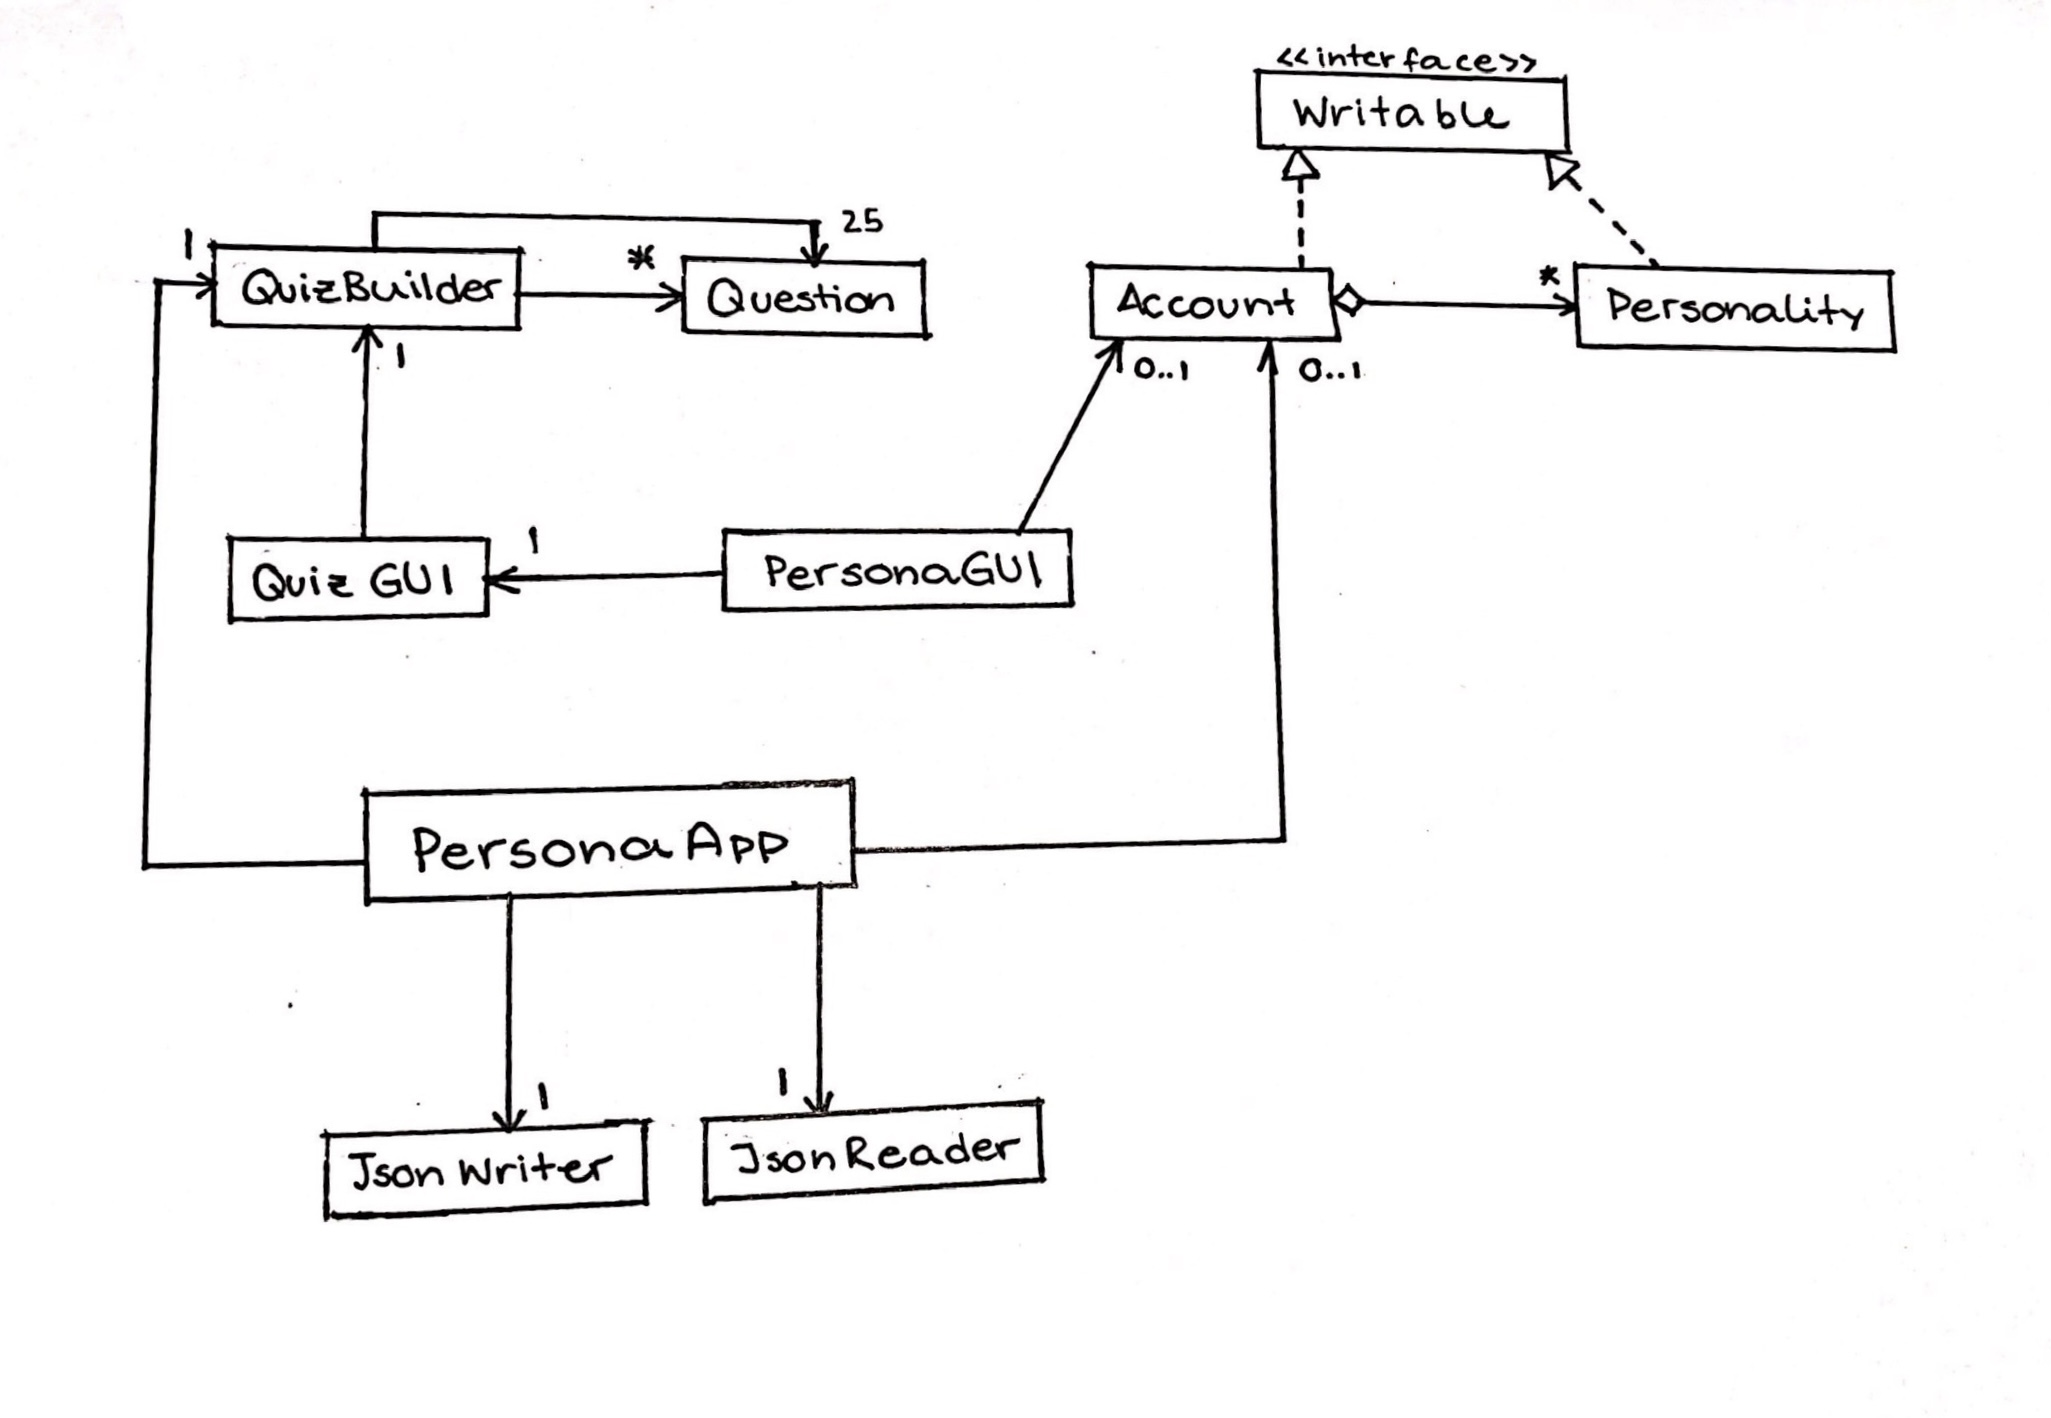 <<interface>>
Writable
25
1
*
QuizBuilder
Question
Account
*
Personality
1
0..1
0..1
1
Quiz GUI
PersonaGUI
PersonaApp
1
1
Json Writer
JsonReader